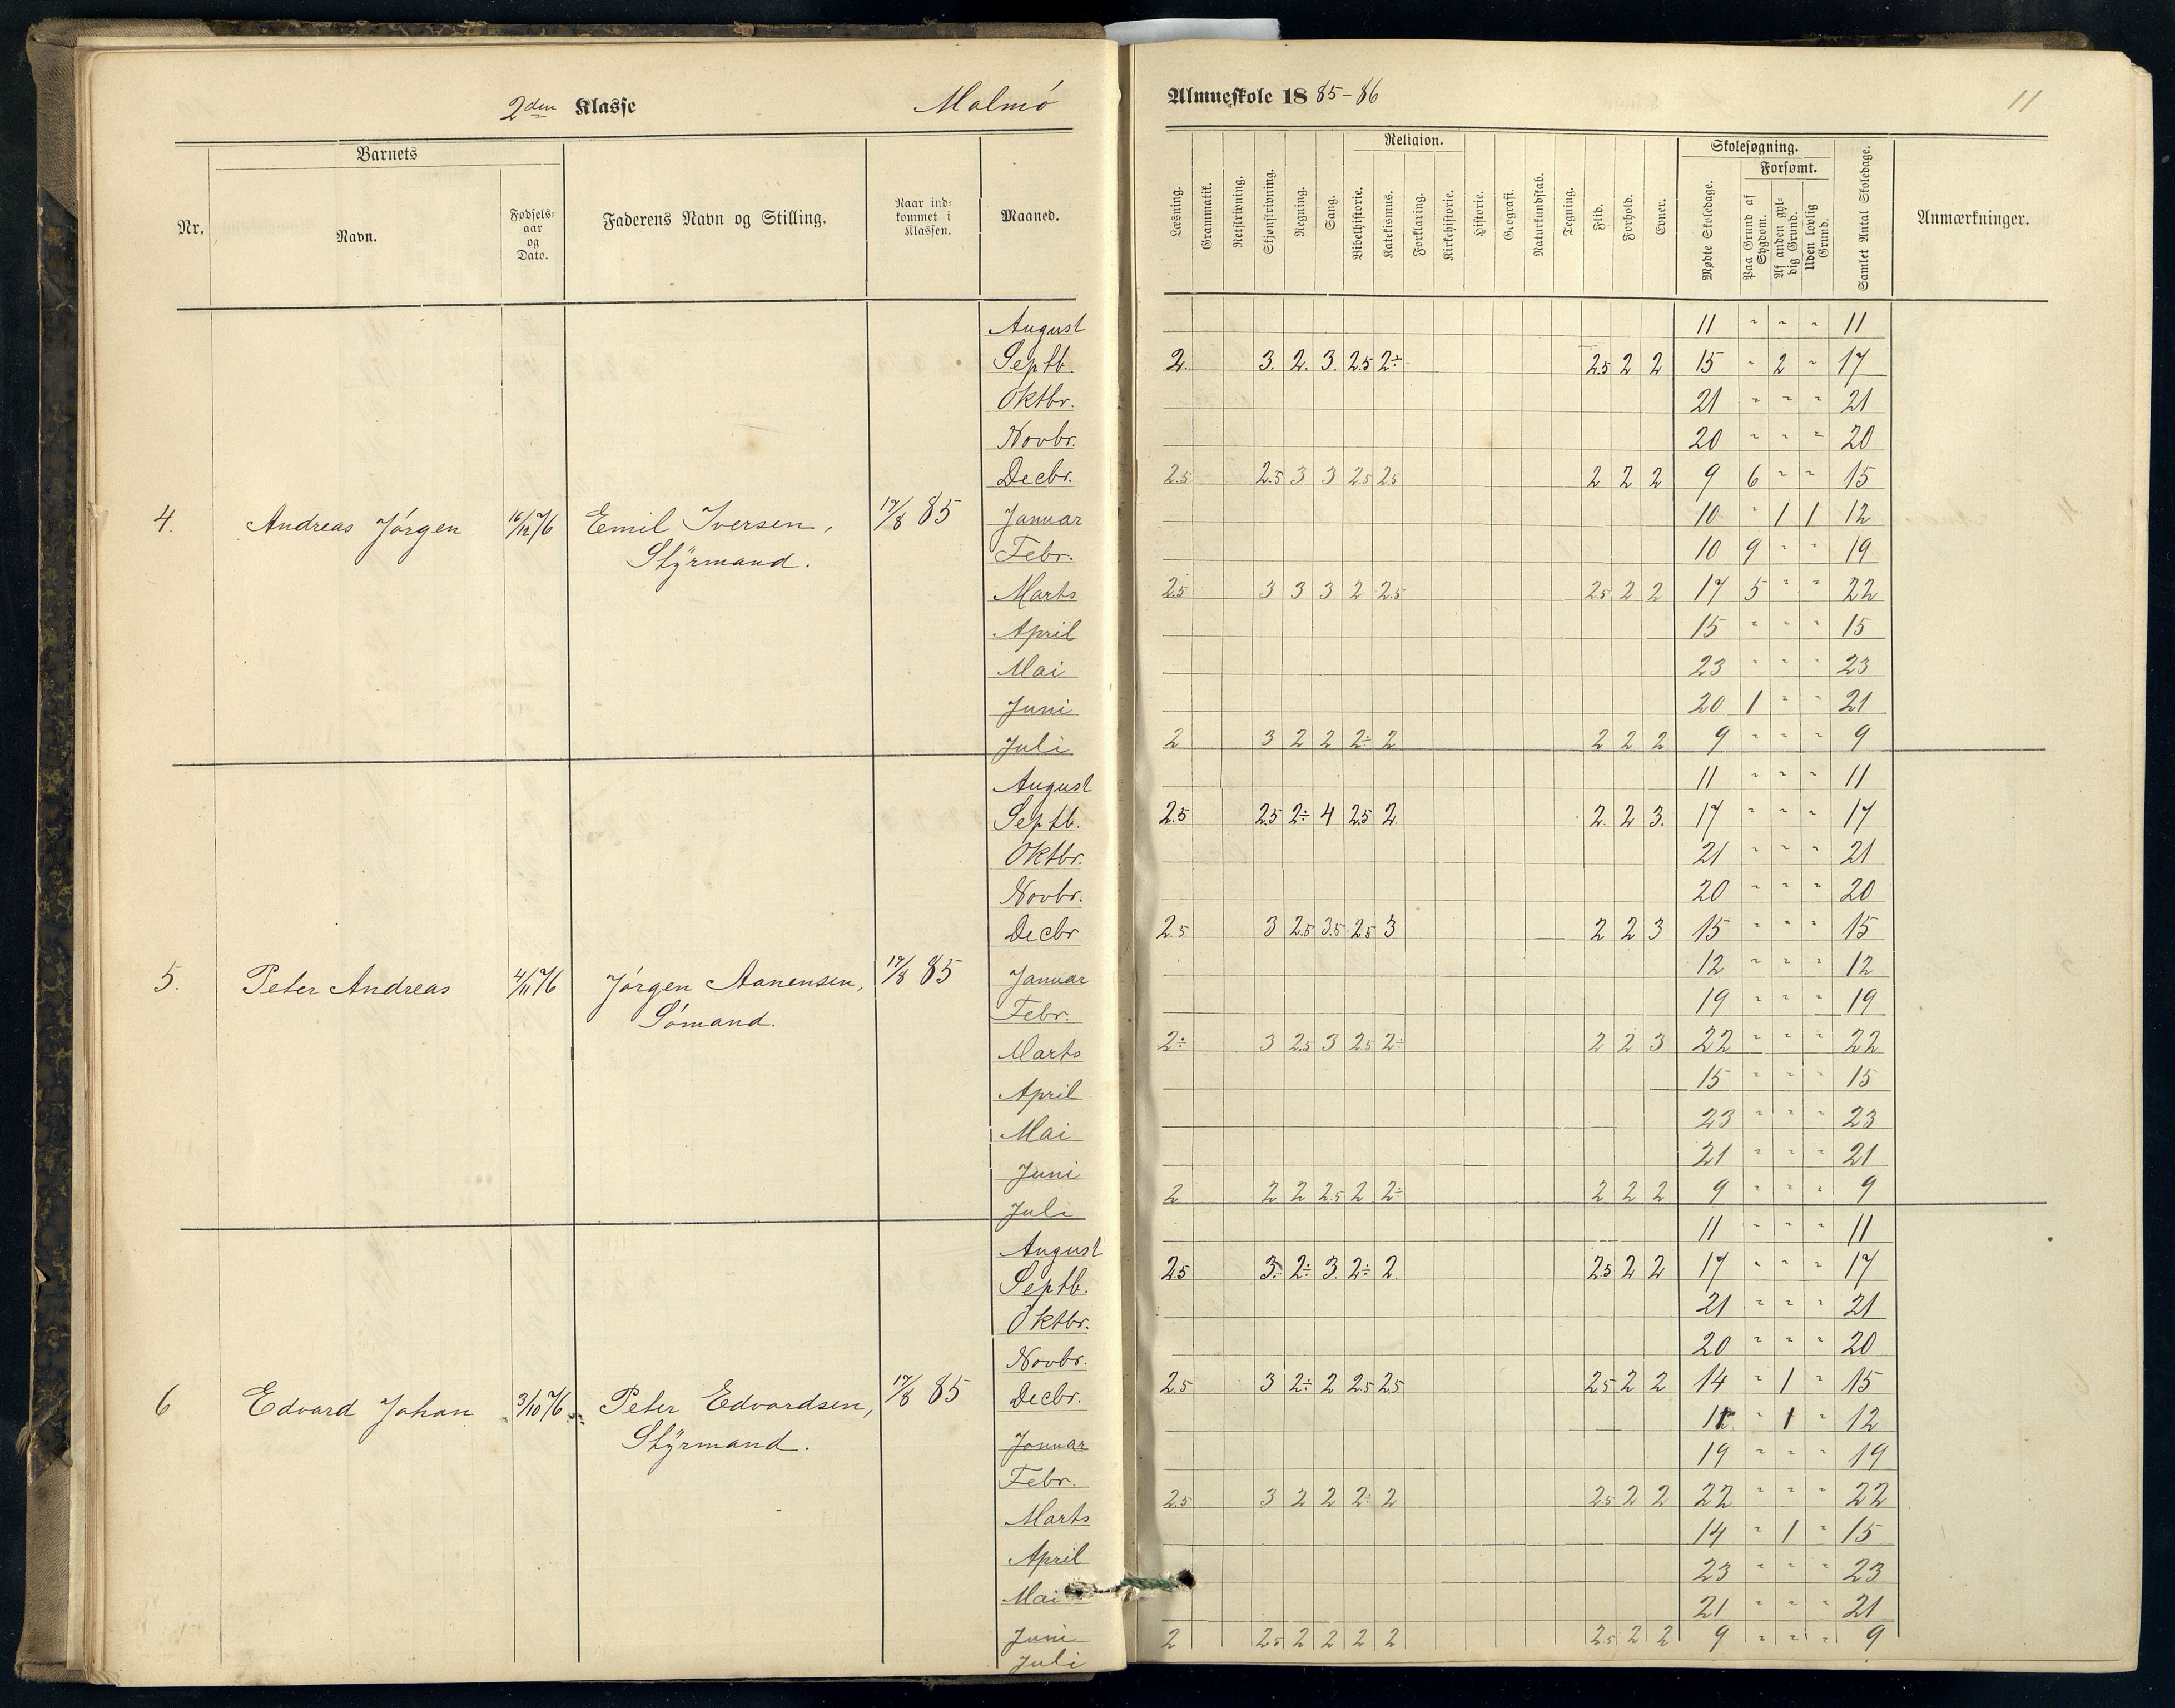 2den Klasse Malmó Almueskole 1885-86 11
Nr. Barnets Navn. Fødsels-aar og Dato. Faderens Navn og Stilling. Naar ind-kommet i Klassen. Maaned. Læsning. Grammatik. Retskrivning. Skjønskrivning. Regning. Sang. Religion. Bibelhistorie. Katekismus. Forklaring. Kirkehistorie. Historie. Geografi. Naturkundskab. Tegning. Flid. Forhold. Evner. Skolesøgning. Mødte Skoledage. Forsømt. Paa Grund af Sygdom. Af anden gyl-dig Grund. Uden lovlig Grund. Samlet Antal Skoledage. Anmærkninger.
August 11 " " " 11
Septb. 2. 3. 2. 3. 2.5 2÷ 2.5 2 2 15 " 2 " 17
Oktbr. 21 " " " 21
Novbr. 20 " " " 20
Decbr. 2.5 2.5 3 3 2.5 2.5 2 2 2 9 6 " " 15
4. Andreas Jórgen 16/12 76 Emil Iversen, 17/8 85 Januar 10 " 1 1 12
Stÿrmand. Febr. 10 9 " " 19
Marts 2.5 3 3 3 2 2.5 2.5 2 2 17 5 " " 22
April 15 " " " 15
Mai 23 " " " 23
Juni 20 1 " " 21
Juli 2 3 2 2 2÷ 2 2 2 2 9 " " " 9
August 11 " " " 11
Septb. 2.5 2.5 2÷ 4 2.5 2. 2. 2 3. 17 " " " 17
Oktbr. 21 " " " 21
Novbr. 20 " " " 20
Decbr 2.5 3 2.5 3.5 2.5 3 2 2 3 15 " " " 15
5. Peter Andreas 4/11 76 Jórgen Aanensen, 17/8 85 Januar 12 " " " 12
Sómand. Febr. 19 " " " 19
Marts 2÷ 3 2.5 3 2.5 2÷ 2 2 3 22 " " " 22
April 15 " " " 15
Mai 23 " " " 23
Juni 21 " " " 21
Juli 2 2 2 2.5 2 2÷ 2 2 2 9 " " " 9
August 11 " " " 11
Septb. 2.5 3÷ 2÷ 3 2÷ 2. 2.5 2 2 17 " " " 17
Oktbr. 21 " " " 21
Novbr. 20 " " " 20
6 Edvard Johan 3/10 76 Peter Edvardsen, 17/8 85 Decbr. 2.5 3 2÷ 2 2.5 2.5 2.5 2 2 14 " 1 " 15
Stÿrmand. Januar 11 " 1 " 12
Febr. 19 " " " 19
Marts 2.5 3 2 2 2÷ 2 2.5 2 2 22 " " " 22
April 14 " 1 " 15
Mai 23 " " " 23
Juni 21 " " " 21
Juli 2 2.5 2 2 2 2 2.5 2 2 9 " " " 9